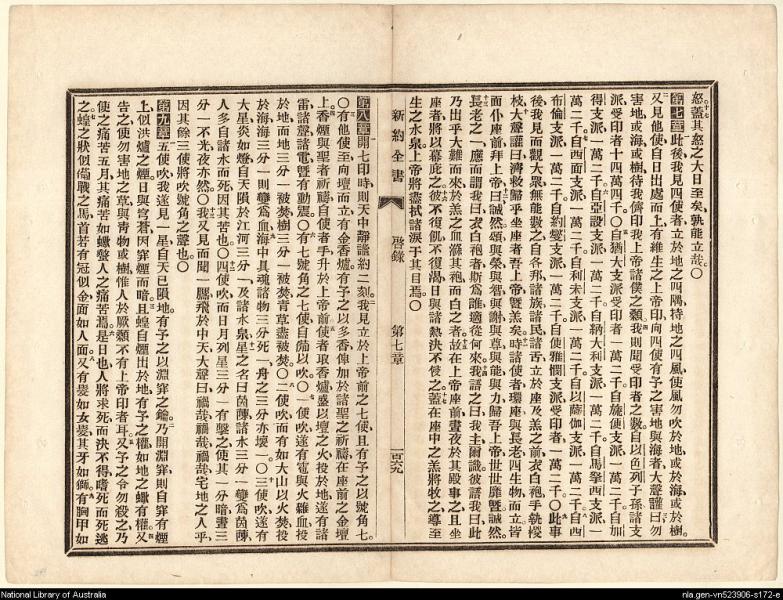 怒蓋其怒之大日至矣孰能立哉〇
第七章此後我見四使者立於地之四隅持地之四風使風勿吹於地或於海或於樹
又見他使自日出處而上有維生之上帝印向四使有予之害地與海者大聲讙曰勿
害地或海或樹待我儕印我上帝諸僕之顙我則聞受印者之數自以色列子孫諸支
派受印者十四萬四千〇自猶大支派受印者一萬二千自流便支派一萬二千自加
得支派一萬二千自亞設支派一萬二千自納大利支派一萬二千自馬拏西支派一
萬二千自西面支派一萬二千自利未支派一萬二千自以薩伽支派一萬二千自西
布倫支派一萬二千自約瑟支派一萬二千自便雅憫支派受印者一萬二千〇此事
後我見而觀大眾無能數之自各邦諸族諸民諸舌立於座及羔之前衣白袍手執椶
枝大聲讙曰濟救歸乎坐座者吾上帝暨羔矣時諸使者環座與長老四生物而立皆
而仆座前拜上帝曰誠然頌與榮與智與謝與尊與能與力歸吾上帝世世靡暨誠然
長老之一應而謂我曰衣白袍者斯為誰適從何來我語之曰我主爾識彼語我曰此
乃出乎大難而來於羔之血滌其袍而白之者故在上帝座前晝夜於其殿事之且坐
座者將以幕庇之彼不復飢不復渴日與諸熱決不侵之蓋在座中之羔將牧之導至
生之水泉上帝將盡拭諸淚于其目焉〇
新約全書
啓錄
第七章
第八章開七印時則天中靜謐約二刻我見立於上帝前之七使且有予之以號角七
〇有他使至向壇而立有金香爐有予之以多香俾加於諸聖之祈禱在座前之金壇
上香煙與聖者祈禱自使者手升於上帝前使者取香爐盛以壇之火投於地遂有諸
雷諸聲諸電暨有動震〇有七號角之七使自備以吹〇一使吹遂有雹與火雜血投
於地而地三分一被焚樹三分一被焚青草盡被焚〇二使吹而有如大山以火焚投
於海海三分一則變為血海中具魂諸物三分一死舟之三分亦壞〇三使吹遂有
大星炎如燈自天隕於江河三分一及諸水泉星之名曰茵蔯諸水三分一變為茵蔯
人多自諸水而死因其苦也〇四使吹而日月列星三分一有擊之使其一分暗晝三
分一不光夜亦然〇我又見而聞一鵰飛於中天大聲曰禍哉禍哉禍哉宅地之人乎
因其餘三使將吹號角之聲也〇
第九章五使吹我遂見一星自天已隕地有予之以淵穽之鑰乃開淵穽則自穽有煙
上似洪爐之煙日與穹蒼因穽煙而暗且蝗自煙出於地有予之權如地之蠍有權又
告之使勿害地之草與青物或樹惟人於厥顙不有上帝印者耳又予之令勿殺之乃
使之痛苦五月其痛苦如蠍螫人之痛苦焉是日也人將求死而決不得嗜死而死逃
之蝗之狀似備戰之馬首若有冠似金面如人面又有髮如女髮其牙如獅有胸甲如
National Library of Australia
nla.gen-vn523906-s172-e